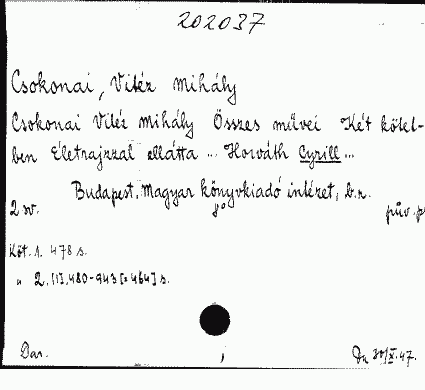 202037
Csokonai, Vitéz Mihály
Csokonai Vitéz Mihály Összes művei Két kötet-
ben Életrajzzal ellátta ... Horváth Cyrill ...
Budapest, Magyar könyvkiadó intézet, b.r.
2 sv. 8° pův.
Köt. 1. 478 s.
" 2. [1], 480-943 [=464] s.
Dar.